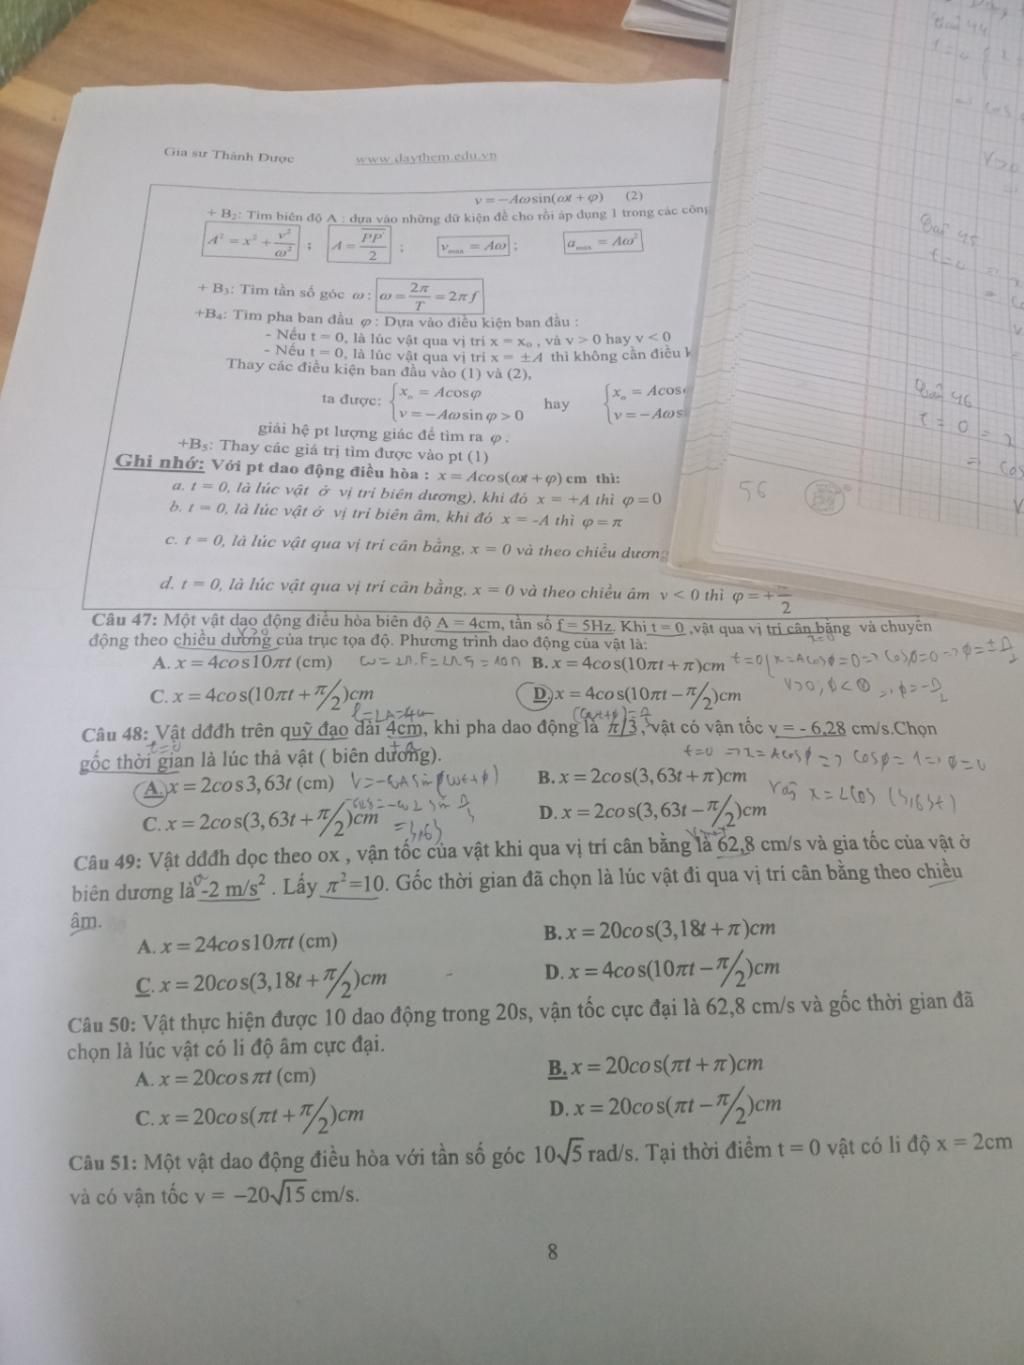 Gia sư Thành Được www.daythem.edu.vn
v = −Aωsin(ωt + φ) (2)
+ B₂: Tìm biên độ A : dựa vào những dữ kiện đề cho rồi áp dụng 1 trong các công
A² = x² + v²/ω² ; A = PP'/2 ; v_max = Aω ; a_max = Aω²
+ B₃: Tìm tần số góc ω : ω = 2π/T = 2πf
+B₄: Tìm pha ban đầu φ : Dựa vào điều kiện ban đầu :
- Nếu t = 0, là lúc vật qua vị trí x = x₀ , và v > 0 hay v < 0
- Nếu t = 0, là lúc vật qua vị trí x = ±A thì không cần điều k
Thay các điều kiện ban đầu vào (1) và (2),
ta được: { x₀ = Acosφ hay { x₀ = Acos
v = −Aωsin φ > 0 v = −Aωs
giải hệ pt lượng giác để tìm ra φ .
+B₅: Thay các giá trị tìm được vào pt (1)
Ghi nhớ: Với pt dao động điều hòa : x = Acos(ωt + φ) cm thì:
a. t = 0, là lúc vật ở vị trí biên dương), khi đó x = +A thì φ = 0
b. t = 0, là lúc vật ở vị trí biên âm, khi đó x = -A thì φ = π
c. t = 0, là lúc vật qua vị trí cân bằng, x = 0 và theo chiều dương
d. t = 0, là lúc vật qua vị trí cân bằng, x = 0 và theo chiều âm v < 0 thì φ = +π/2
Câu 47: Một vật dao động điều hòa biên độ A = 4cm, tần số f = 5Hz. Khi t = 0 ,vật qua vị trí cân bằng và chuyển
v>0 x=0
động theo chiều dương của trục tọa độ. Phương trình dao động của vật là:
A. x = 4cos10πt (cm) ω = 2π.F = 2π.5 = 10π B. x = 4cos(10πt + π)cm t=0 { x=Acosφ=0 => cosφ=0 => φ=±π/2
v>0, φ<0 => φ=-π/2
C. x = 4cos(10πt + π/2)cm D. x = 4cos(10πt − π/2)cm
l=2A=4cm (ωt+φ)=π/3
Câu 48: Vật dđđh trên quỹ đạo dài 4cm, khi pha dao động là π/3 ,vật có vận tốc v = - 6,28 cm/s.Chọn
t=0 +A t=0 => x=Acosφ => cosφ=1 => φ=0
gốc thời gian là lúc thả vật ( biên dương).
A. x = 2cos3,63t (cm) v=-ωA sin(ωt+φ) B. x = 2cos(3,63t + π)cm
Vậy x = 2cos (3,63t)
C. x = 2cos(3,63t + π/2)cm D. x = 2cos(3,63t − π/2)cm
=3,63
Câu 49: Vật dđđh dọc theo ox , vận tốc của vật khi qua vị trí cân bằng là 62,8 cm/s và gia tốc của vật ở
biên dương là -2 m/s² . Lấy π²=10. Gốc thời gian đã chọn là lúc vật đi qua vị trí cân bằng theo chiều
âm.
A. x = 24cos10πt (cm) B. x = 20cos(3,18t + π)cm
C. x = 20cos(3,18t + π/2)cm D. x = 4cos(10πt − π/2)cm
Câu 50: Vật thực hiện được 10 dao động trong 20s, vận tốc cực đại là 62,8 cm/s và gốc thời gian đã
chọn là lúc vật có li độ âm cực đại.
A. x = 20cosπt (cm) B. x = 20cos(πt + π)cm
C. x = 20cos(πt + π/2)cm D. x = 20cos(πt − π/2)cm
Câu 51: Một vật dao động điều hòa với tần số góc 10√5 rad/s. Tại thời điểm t = 0 vật có li độ x = 2cm
và có vận tốc v = −20√15 cm/s.
8
Bài 44
t = 0
v>0
Bài 45
t = 0
Bài 46
t = 0
=> cos
56